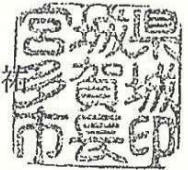 宮城県
祐
多賀城
市長印